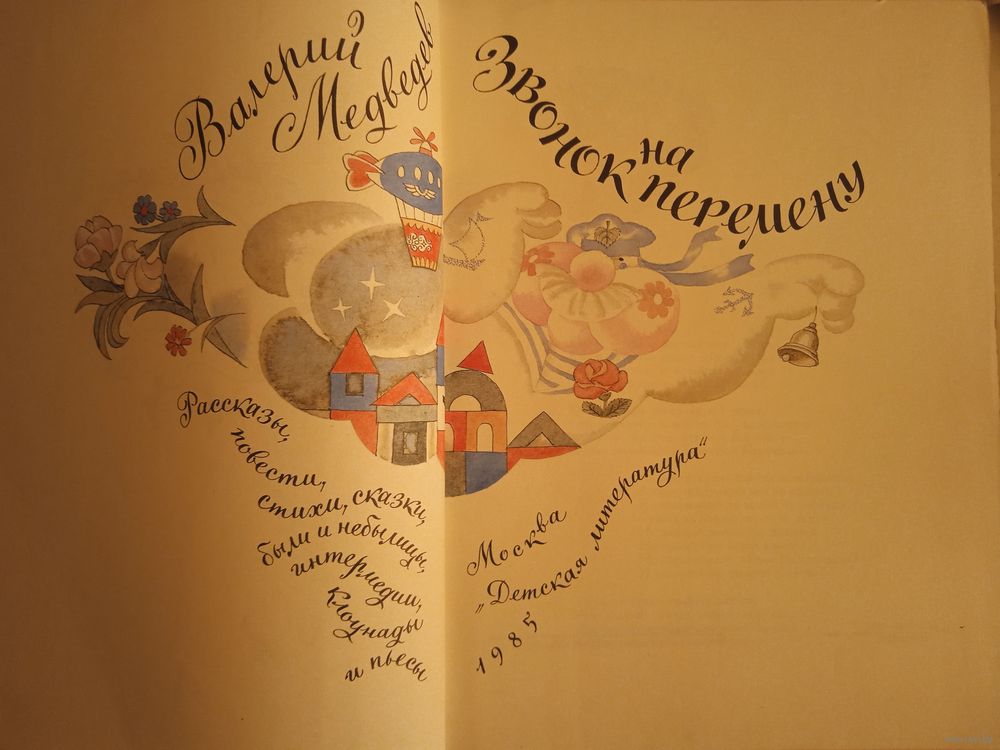 Валерий
Медведев
Звонок
на
перемену
Рассказы,
повести,
стихи, сказки,
были и небылицы,
интермедии,
клоунады
и пьесы
Москва
„Детская литература“
1985